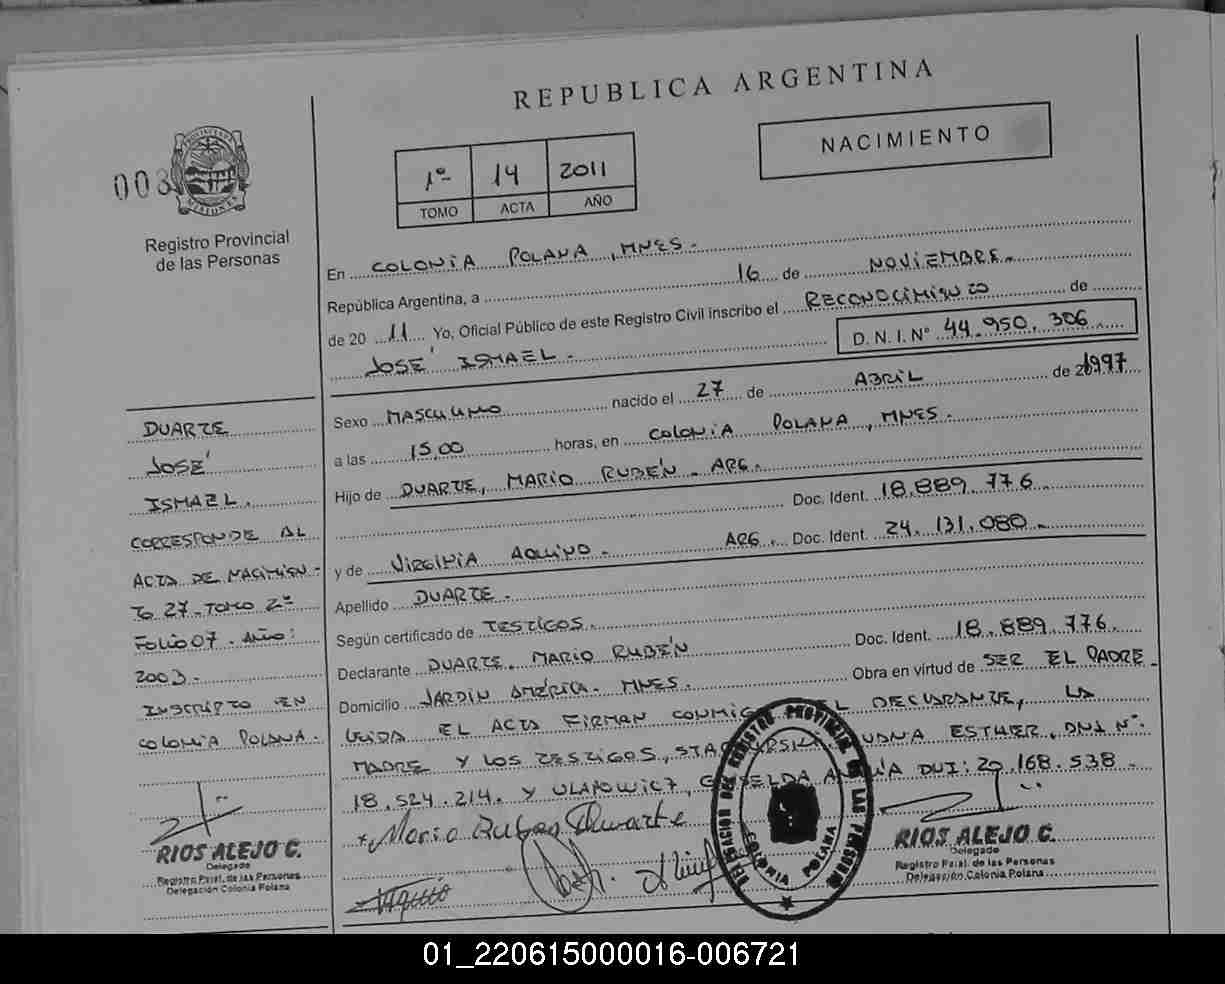 REPUBLICA ARGENTINA
NACIMIENTO
1º 14 2011
TOMO ACTA AÑO
008
PROVINCIA DE MISIONES
Registro Provincial
de las Personas
En COLONIA POLANA, MNES.
República Argentina, a 16 de NOVIEMBRE.
de 2011 Yo, Oficial Público de este Registro Civil inscribo el RECONOCIMIENTO de
JOSÉ ISMAEL. D.N.I. Nº 44.950.306
Sexo MASCULINO nacido el 27 de ABRIL de 1997
a las 15,00 horas, en COLONIA POLANA, MNES.
Hijo de DUARTE, MARIO RUBÉN - ARG.
Doc. Ident. 18.889.776
y de VIRGINIA AQUINO. ARG. Doc. Ident. 24.131.080.
Apellido DUARTE.
Según certificado de TESTIGOS.
Declarante DUARTE, MARIO RUBÉN Doc. Ident. 18.889.776.
Domicilio JARDÍN AMÉRICA. MNES. Obra en virtud de SER EL PADRE.
LEIDA EL ACTA FIRMAN CONMIGO EL DECLARANTE, LA
MADRE Y LOS TESTIGOS, ESTHER, DNI Nº.
18.524.214. Y ULANOWICZ, GRISELDA DNI: 20.168.538.
Mario Ruben Duarte
Aquino
DELEGACION DEL REGISTRO PROVINCIAL DE LAS PERSONAS
COLONIA POLANA
RIOS ALEJO C.
Delegado
Registro Pcial. de las Personas
Delegación Colonia Polana
DUARTE
JOSÉ
ISMAEL.
CORRESPONDE AL
ACTA DE NACIMIEN-
TO 27. TOMO 2º
FOLIO 07. AÑO:
2003.
INSCRIPTO EN
COLONIA POLANA.
RIOS ALEJO C.
Delegado
Registro Pcial. de las Personas
Delegación Colonia Polana
01_220615000016-006721